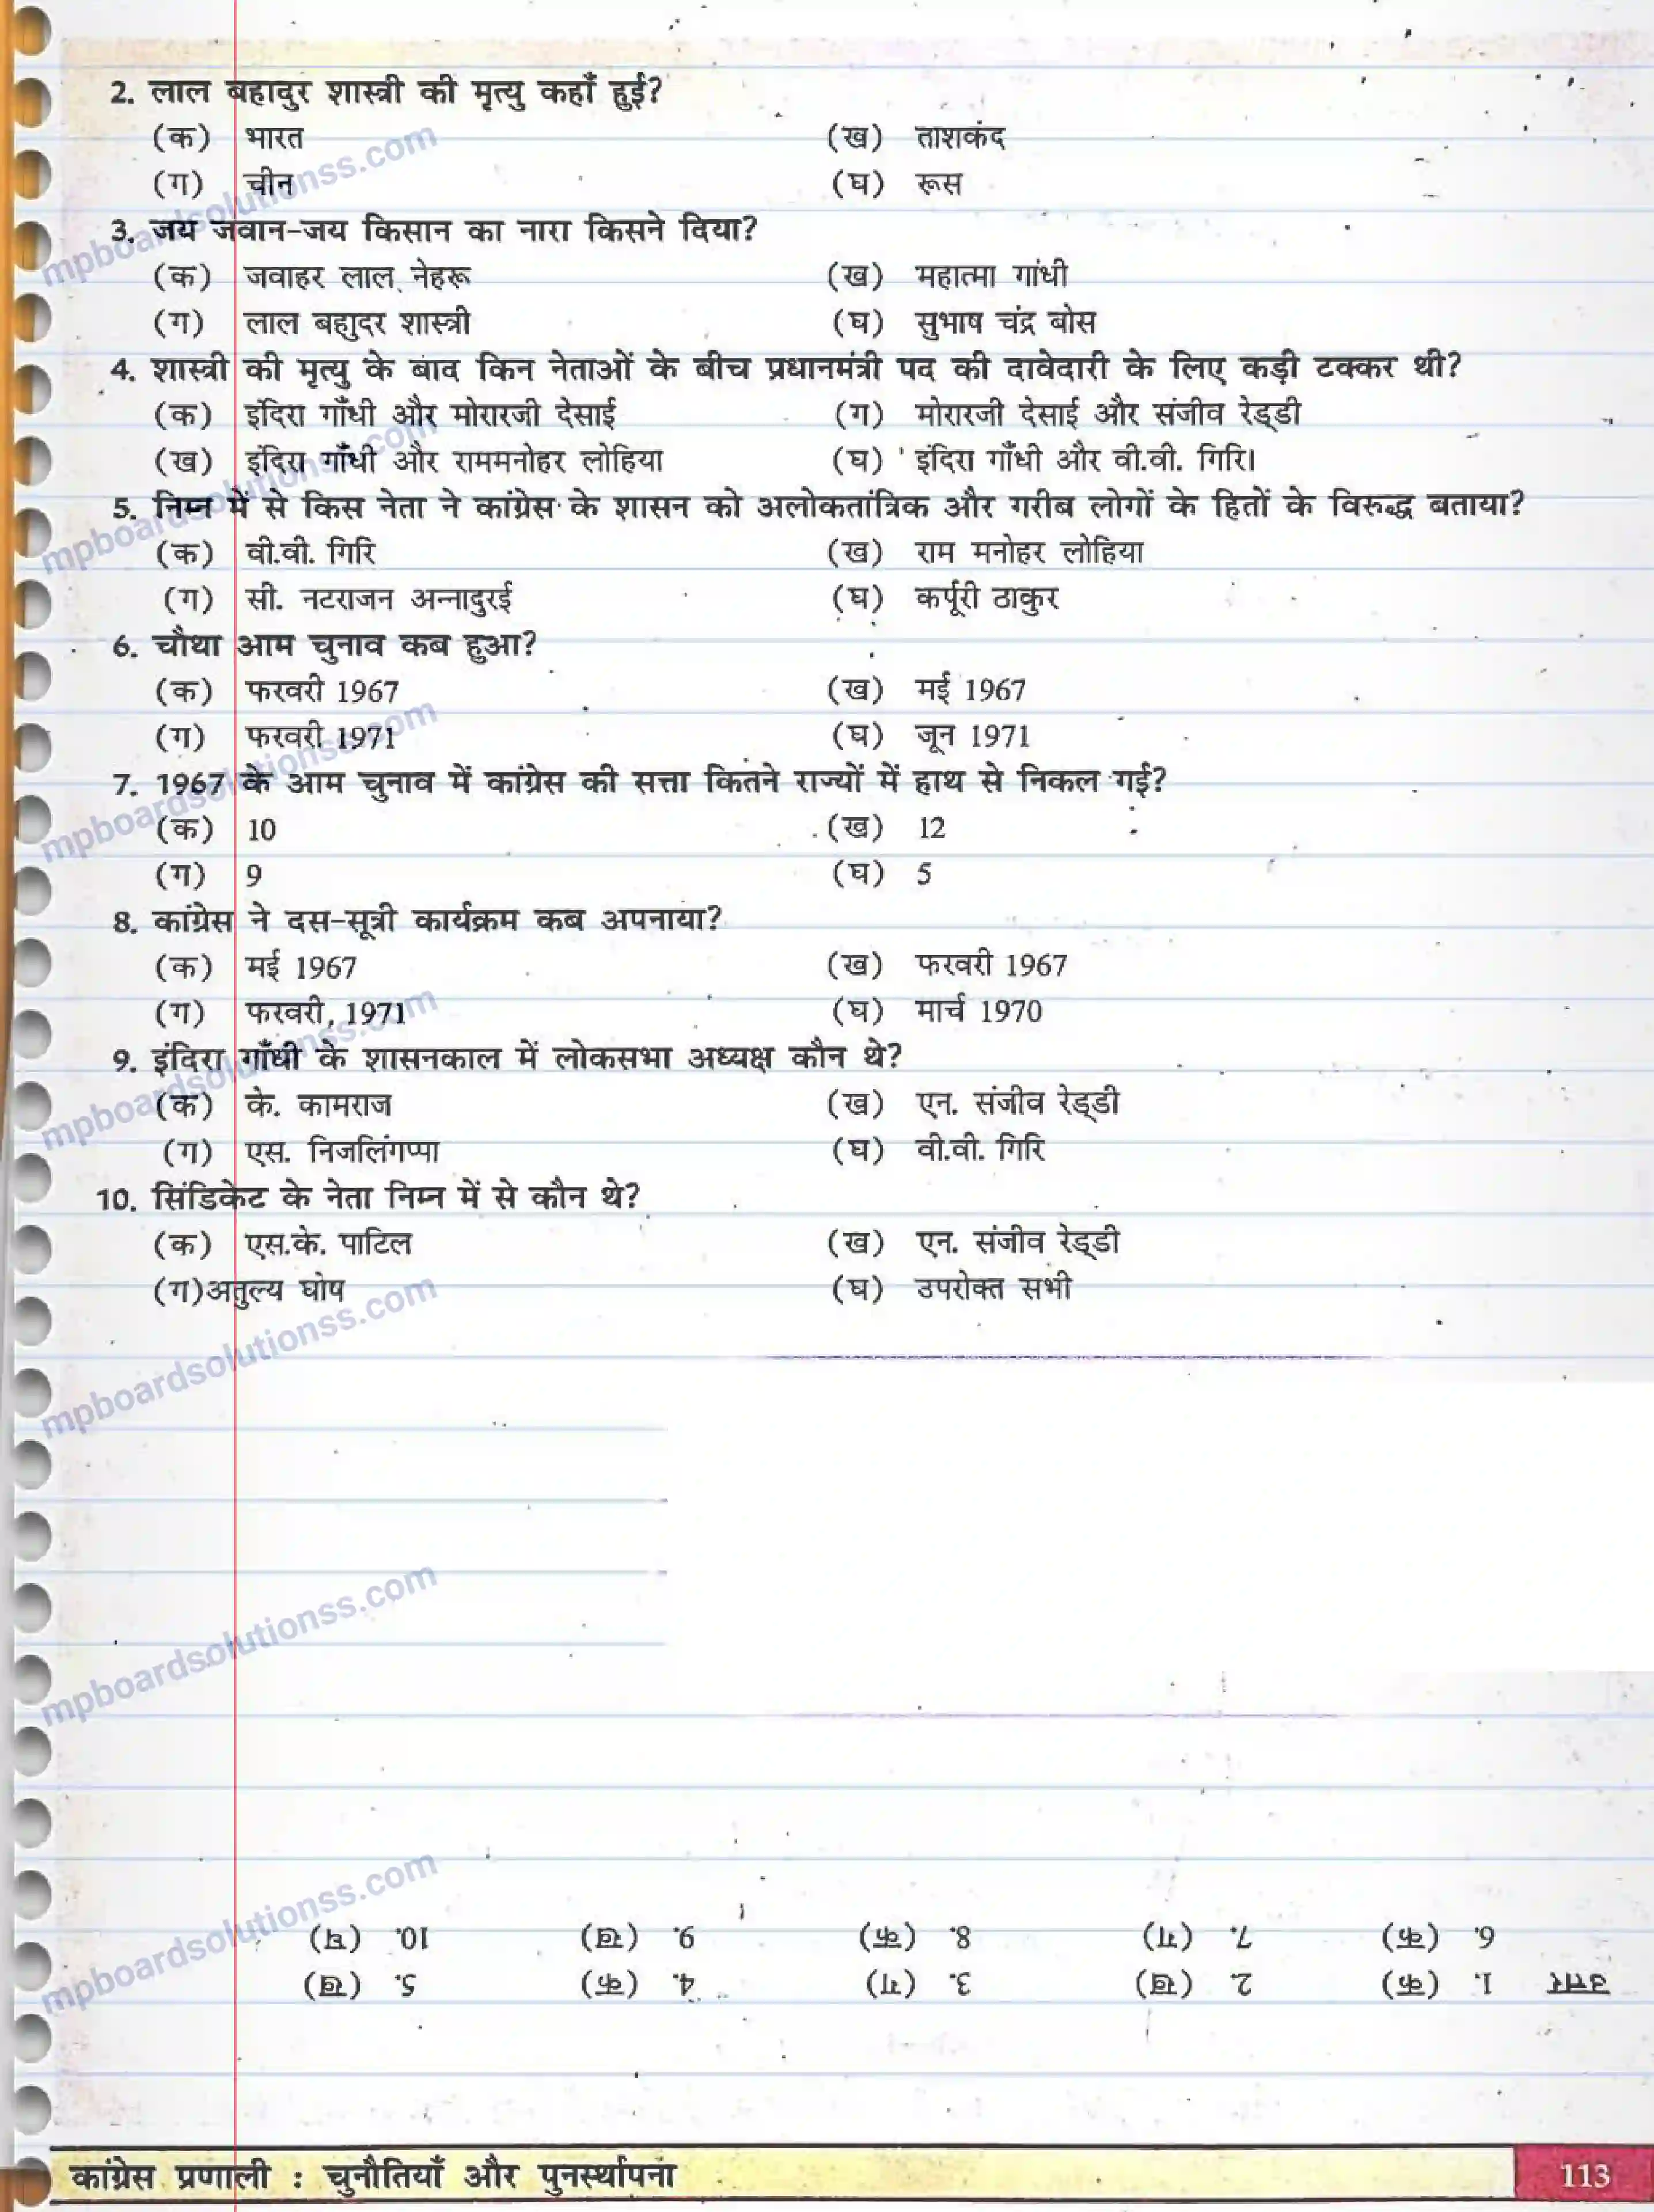 2. लाल बहादुर शास्त्री की मृत्यु कहाँ हुई?
(क) भारत (ख) ताशकंद
(ग) चीन (घ) रूस
3. जय जवान-जय किसान का नारा किसने दिया?
(क) जवाहर लाल नेहरू (ख) महात्मा गांधी
(ग) लाल बहाुदर शास्त्री (घ) सुभाष चंद्र बोस
4. शास्त्री की मृत्यु के बाद किन नेताओं के बीच प्रधानमंत्री पद की दावेदारी के लिए कड़ी टक्कर थी?
(क) इंदिरा गाँधी और मोरारजी देसाई (ग) मोरारजी देसाई और संजीव रेड्डी
(ख) इंदिरा गाँधी और राममनोहर लोहिया (घ) इंदिरा गाँधी और वी.वी. गिरि।
5. निम्न में से किस नेता ने कांग्रेस के शासन को अलोकतांत्रिक और गरीब लोगों के हितों के विरुद्ध बताया?
(क) वी.वी. गिरि (ख) राम मनोहर लोहिया
(ग) सी. नटराजन अन्नादुरई (घ) कर्पूरी ठाकुर
6. चौथा आम चुनाव कब हुआ?
(क) फरवरी 1967 (ख) मई 1967
(ग) फरवरी 1971 (घ) जून 1971
7. 1967 के आम चुनाव में कांग्रेस की सत्ता कितने राज्यों में हाथ से निकल गई?
(क) 10 (ख) 12
(ग) 9 (घ) 5
8. कांग्रेस ने दस-सूत्री कार्यक्रम कब अपनाया?
(क) मई 1967 (ख) फरवरी 1967
(ग) फरवरी, 1971 (घ) मार्च 1970
9. इंदिरा गाँधी के शासनकाल में लोकसभा अध्यक्ष कौन थे?
(क) के. कामराज (ख) एन. संजीव रेड्डी
(ग) एस. निजलिंगप्पा (घ) वी.वी. गिरि
10. सिंडिकेट के नेता निम्न में से कौन थे?
(क) एस.के. पाटिल (ख) एन. संजीव रेड्डी
(ग)अतुल्य घोष (घ) उपरोक्त सभी
उत्तर 1. (क) 2. (ख) 3. (ग) 4. (क) 5. (ख)
6. (क) 7. (ग) 8. (क) 9. (ख) 10. (घ)
कांग्रेस प्रणाली : चुनौतियाँ और पुनर्स्थापना 113
mpboardsolutionss.com
mpboardsolutionss.com
mpboardsolutionss.com
mpboardsolutionss.com
mpboardsolutionss.com
mpboardsolutionss.com
mpboardsolutionss.com